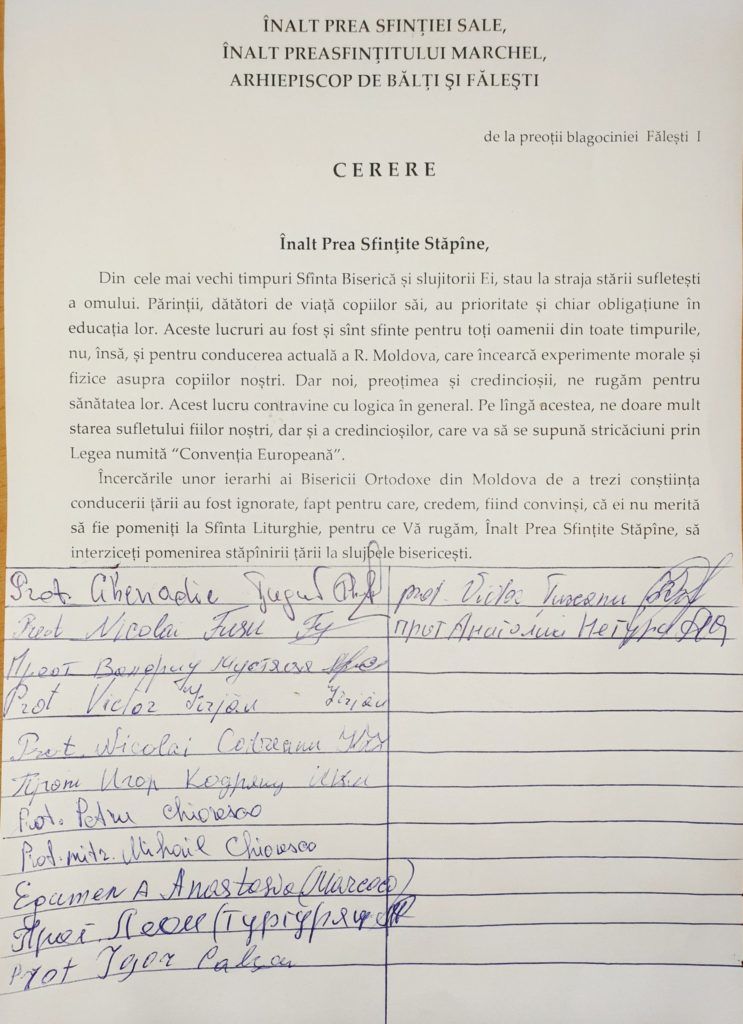 ÎNALT PREA SFINȚIEI SALE,
ÎNALT PREASFINȚITULUI MARCHEL,
ARHIEPISCOP DE BĂLȚI ŞI FĂLEȘTI
de la preoții blagociniei Fălești I
C E R E R E
Înalt Prea Sfințite Stăpîne,
Din cele mai vechi timpuri Sfînta Biserică și slujitorii Ei, stau la straja stării sufletești
a omului. Părinții, dătători de viață copiilor săi, au prioritate și chiar obligațiune în
educația lor. Aceste lucruri au fost și sînt sfinte pentru toți oamenii din toate timpurile,
nu, însă, și pentru conducerea actuală a R. Moldova, care încearcă experimente morale și
fizice asupra copiilor noștri. Dar noi, preoțimea și credincioșii, ne rugăm pentru
sănătatea lor. Acest lucru contravine cu logica în general. Pe lîngă acestea, ne doare mult
starea sufletului fiilor noștri, dar și a credincioșilor, care va să se supună stricăciuni prin
Legea numită “Convenția Europeană”.
Încercările unor ierarhi ai Bisericii Ortodoxe din Moldova de a trezi conștiința
conducerii țării au fost ignorate, fapt pentru care, credem, fiind convinși, că ei nu merită
să fie pomeniți la Sfînta Liturghie, pentru ce Vă rugăm, Înalt Prea Sfințite Stăpîne, să
interziceți pomenirea stăpînirii țării la slujbele bisericești.
Prot. Ghenadie
prot. Victor
Nicolai
прот Анатолий
Прот
Prot Victor Țîrjău Țîrjău
Prot. Nicolai Codreanu
Прот Игор Кодряну
Prot. Petru Chiorescо
Prot. mitr. Mihail Chiorescо
Anastasia
Прот Леон
Prot Igor